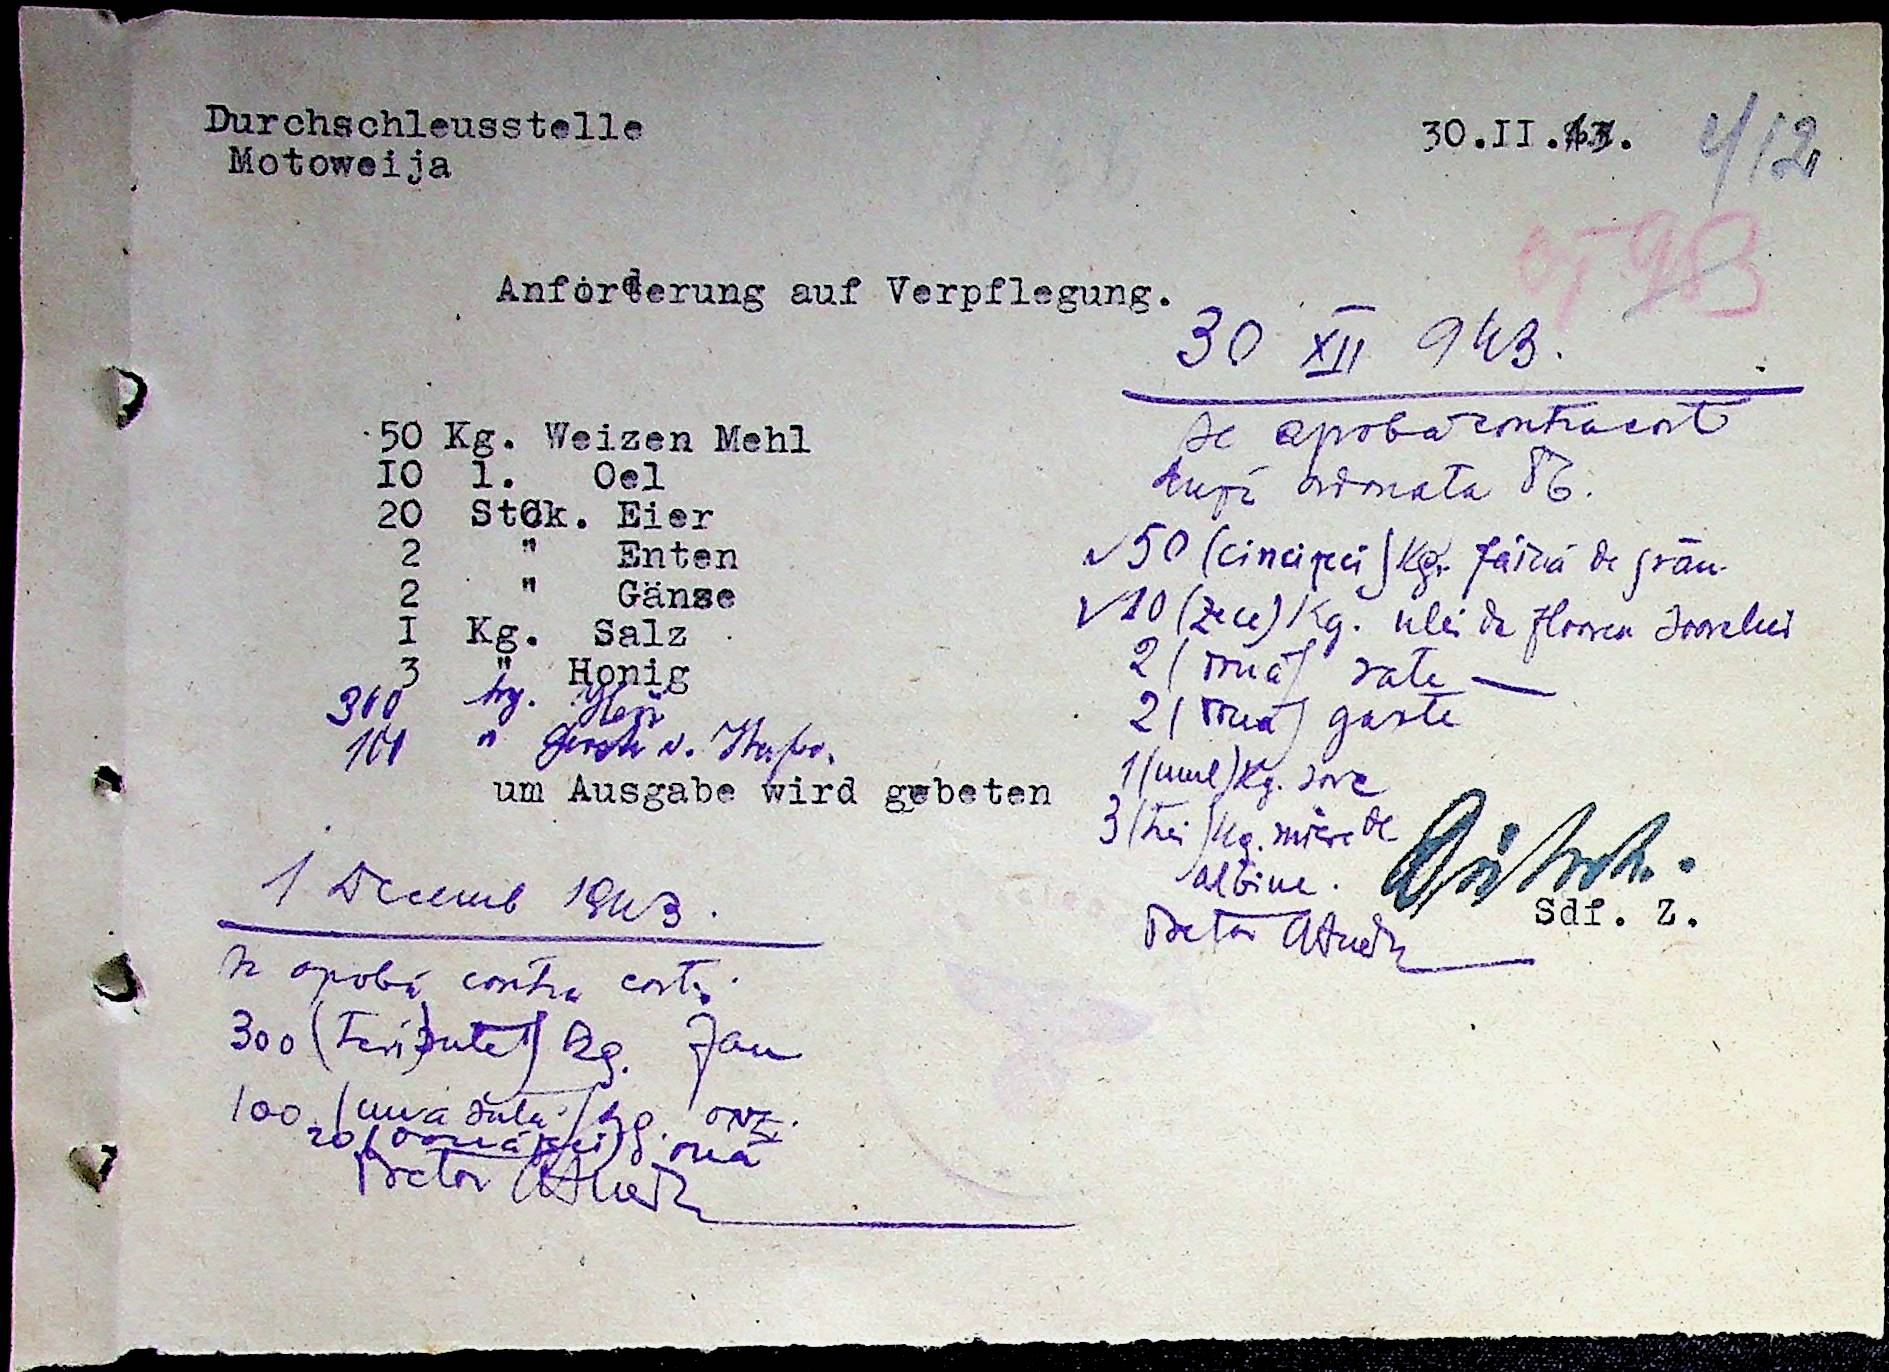 Durchschleusstelle
Motoweija
30.II.43.
4/12
983
Anforderung auf Verpflegung.
50 Kg. Weizen Mehl
IO l. Oel
20 Stck. Eier
2 " Enten
2 " Gänse
I Kg. Salz
3 " Honig
300 kg.
100 "
um Ausgabe wird gebeten
30 XII 943.
se aprobă contra cost
după ordonata 86.
50 (cincizeci) Kg. făină de grâu
10 (zece) Kg. ulei de floarea soarelui
2 (două) rate
2 (două) gaste
1 (unul) Kg. sare
3 (trei) Kg. miere de
albine.
Pretor
Sdf. Z.
1 Decemb 1943.
se aprobă contra cost.
300 (trei sute) kg.
100 (una sută) kg. orz.
20 (douăzeci) ouă
Pretor